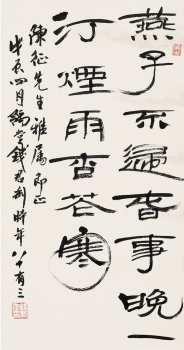 燕子不歸春事晚一
汀煙雨杏花寒
陳征先生雅屬即正
戊辰四月錢君匋時年八十有三